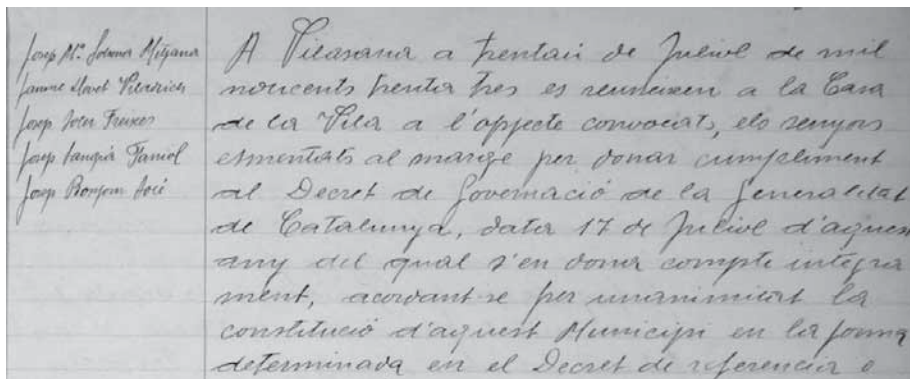 Josep Mª Solsona Mitjana
Jaume Llovet Vilardich
Josep Soler Freixes
Josep Sangrà Faniol
Josep Bonjorn Solé
A Vilasana a trentaú de Juliol de mil
noucents trenta tres es reuneixen a la Casa
de la Vila a l'objecte convocats, els senyors
esmentats al marge per donar cumpliment
al Decret de Governació de la Generalitat
de Catalunya, data 17 de Juliol d'aquest
any del qual s'en dona compte integra
ment, acordant-se per unanimitat la
constitució d'aquest Municipi en la forma
determinada en el Decret de referencia o